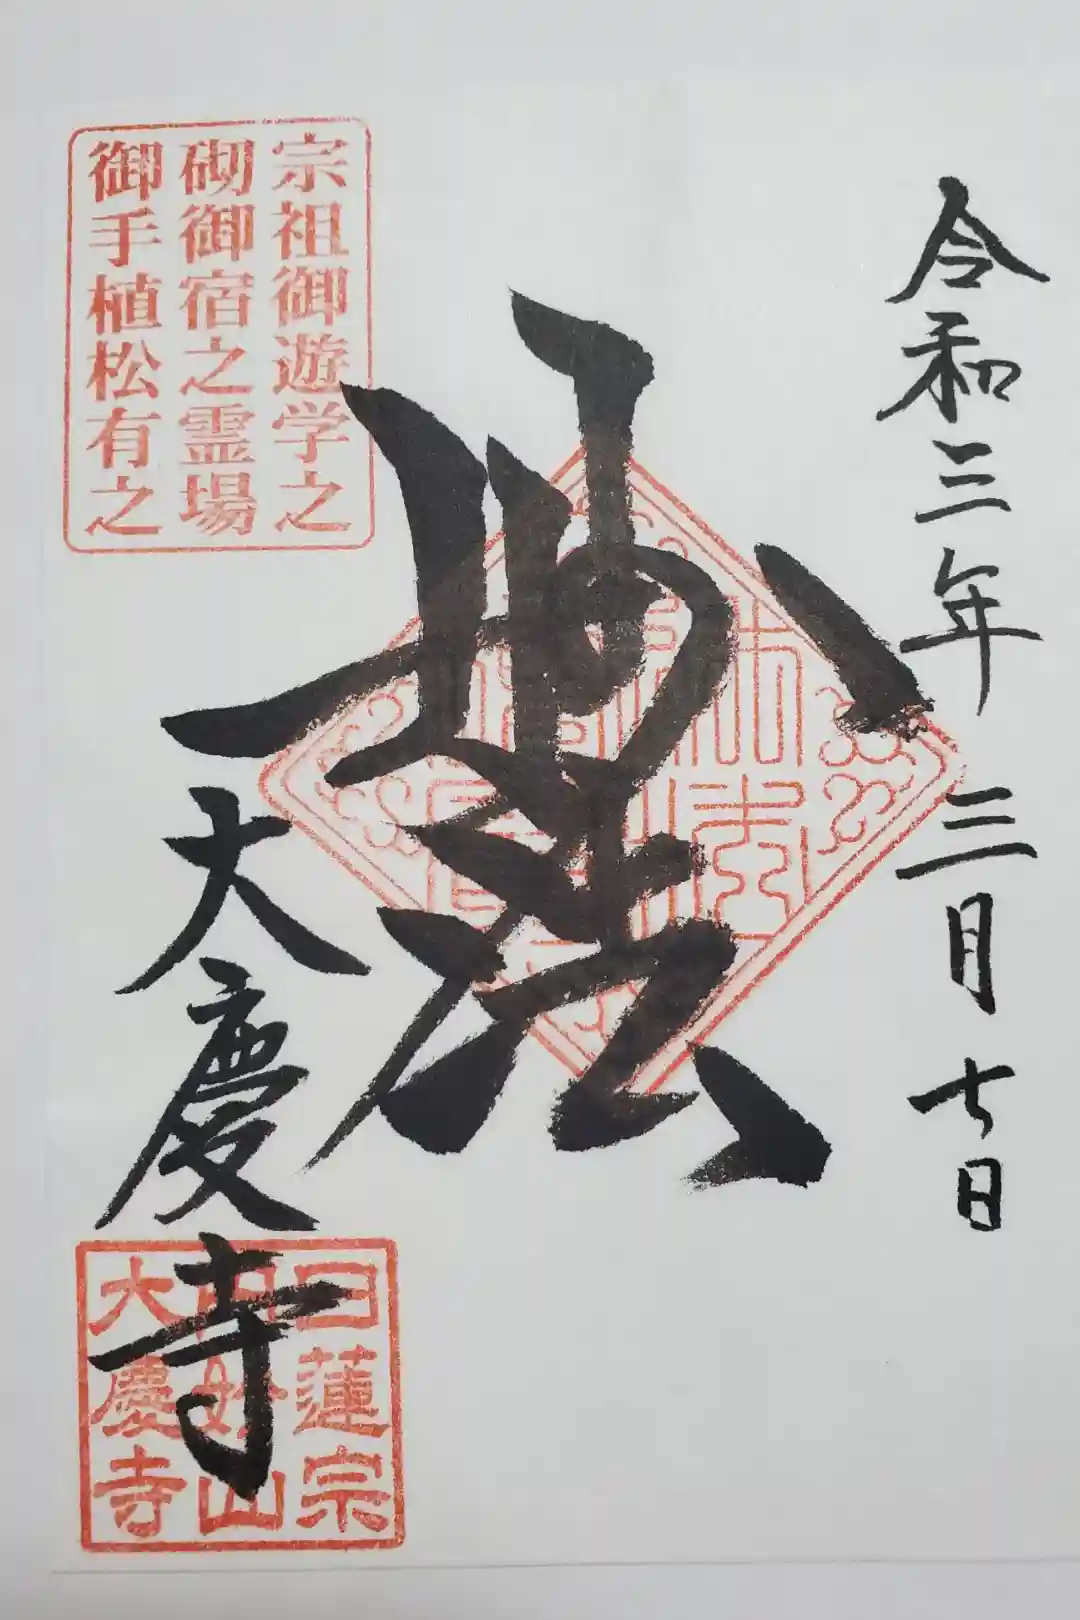 令和三年三月七日
妙法
宗祖御遊学之
砌御宿之霊場
御手植松有之
大慶寺
日蓮宗
円妙山
大慶寺